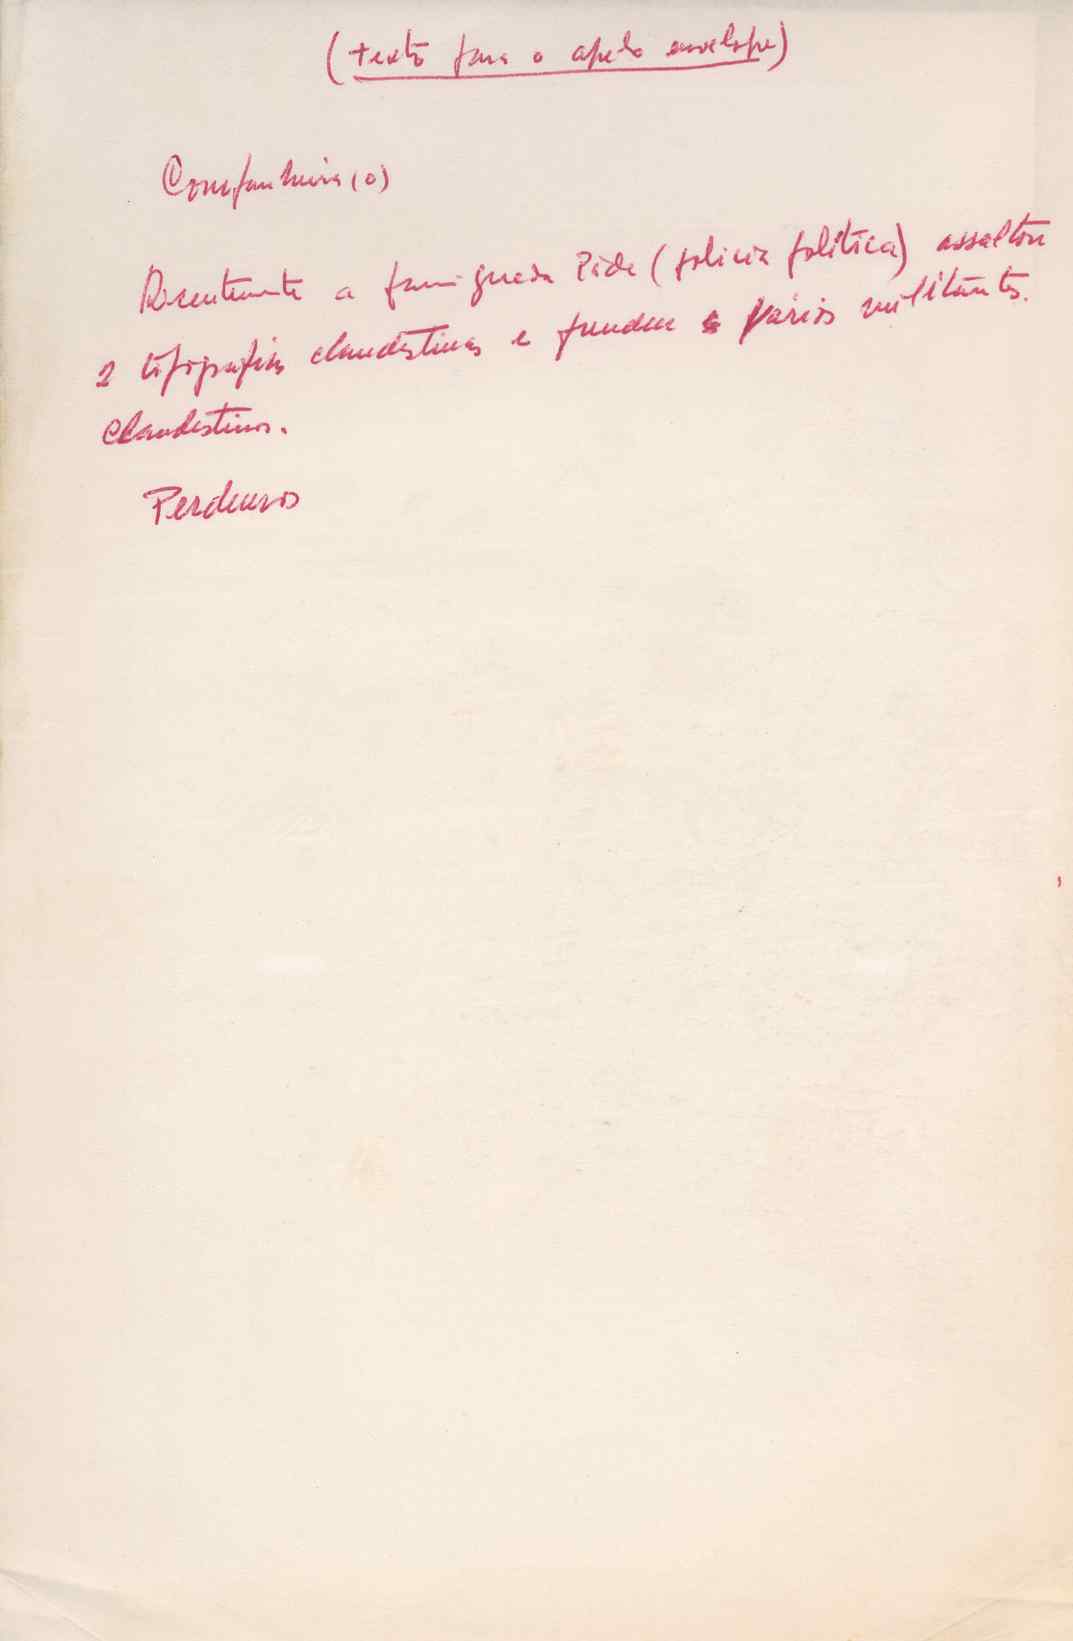 (texto para o apelo envelope)
Companheira(o)
Recentemente a famigerada Pide (policia politica) assaltou
2 tipografias clandestinas e prendeu vários militantes.
clandestinos.
Perdemos